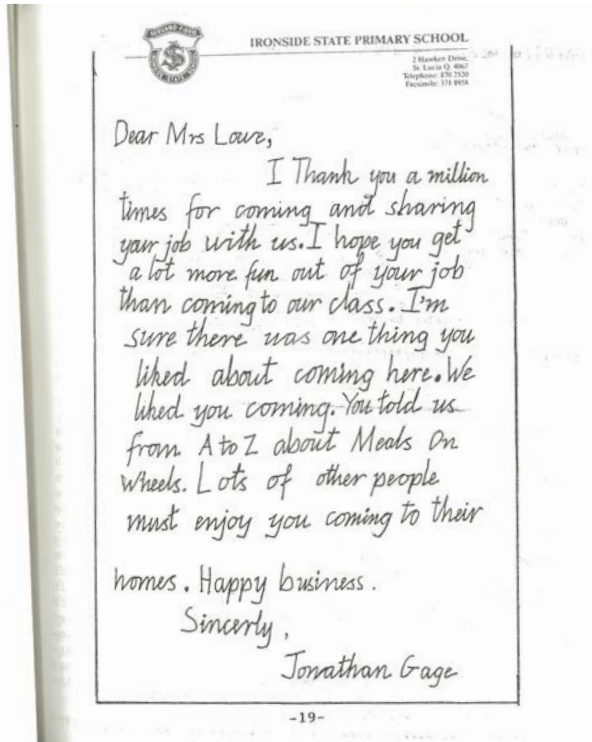 IRONSIDE STATE PRIMARY SCHOOL
2 Hawken Drive,
St. Lucia Q. 4067
Telephone: 870 2520
Facsimile: 371 8958
Dear Mrs Lowe,
I Thank you a million
times for coming and sharing
your job with us. I hope you get
a lot more fun out of your job
than coming to our class. I'm
sure there was one thing you
liked about coming here. We
liked you coming. You told us
from A to Z about Meals On
Wheels. Lots of other people
must enjoy you coming to their
homes. Happy business.
Sincerly,
Jonathan Gage
-19-